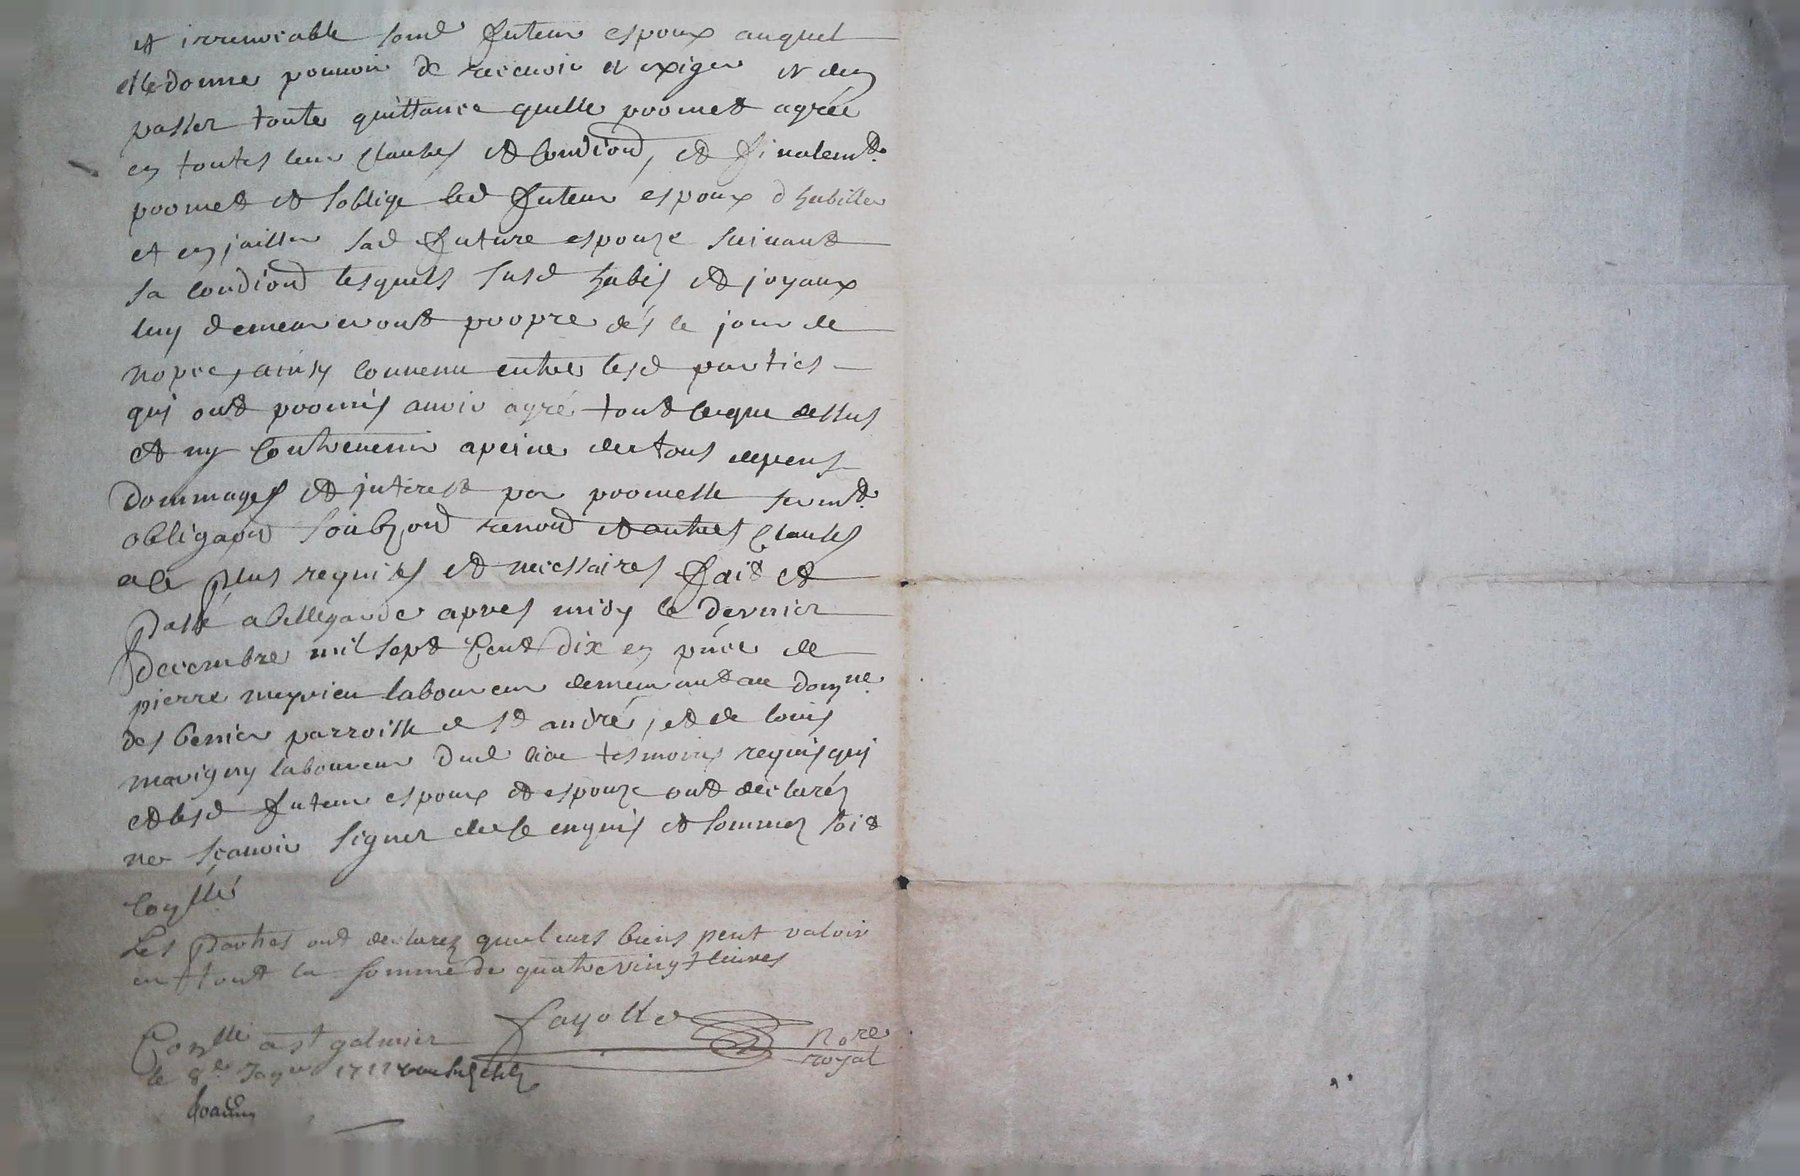 et irrevocable sond futeur espoux auquel
elle donne pouvoir de recevoir et exiger et den
passer toute quittance quelle promet agréé
en toutes leur clauses et condiond, et finalemt.
promet et soblige led futeur espoux dhabiller
et enjailler sad future espouze suivant
sa condiond lesquels susd habis et joyaux
luy demeureront propre dés le jour de
nopce, ainsy convenu entre lesd parties
qui ont promis avoir agré tout ceque dessus
et ny contrevenir apeine de tous depens
dommages et jnterest par promesse sermt.
obligaond soubzond renond et autres clauses
a ce plus requises et necessaires fait et
passé a bellegarde apres midy le dernier
decembre mil sept cent dix en pnce de
pierre meyrieu laboureur demeurant au domne.
des benier parroisse de st andré, et de louis
marigny laboureur dud lieu tesmoins requis qui
et lesd futeur espoux et espouze ont declarés
ne sçavoir signer de ce enquis et sommez soit
conllé
Les parties ont declarez que leurs biens peut valoir
en tout la somme de quatre vingt livres
fayolle
Nore
royal
Conllé a st galmier
le 8e Janer 1711